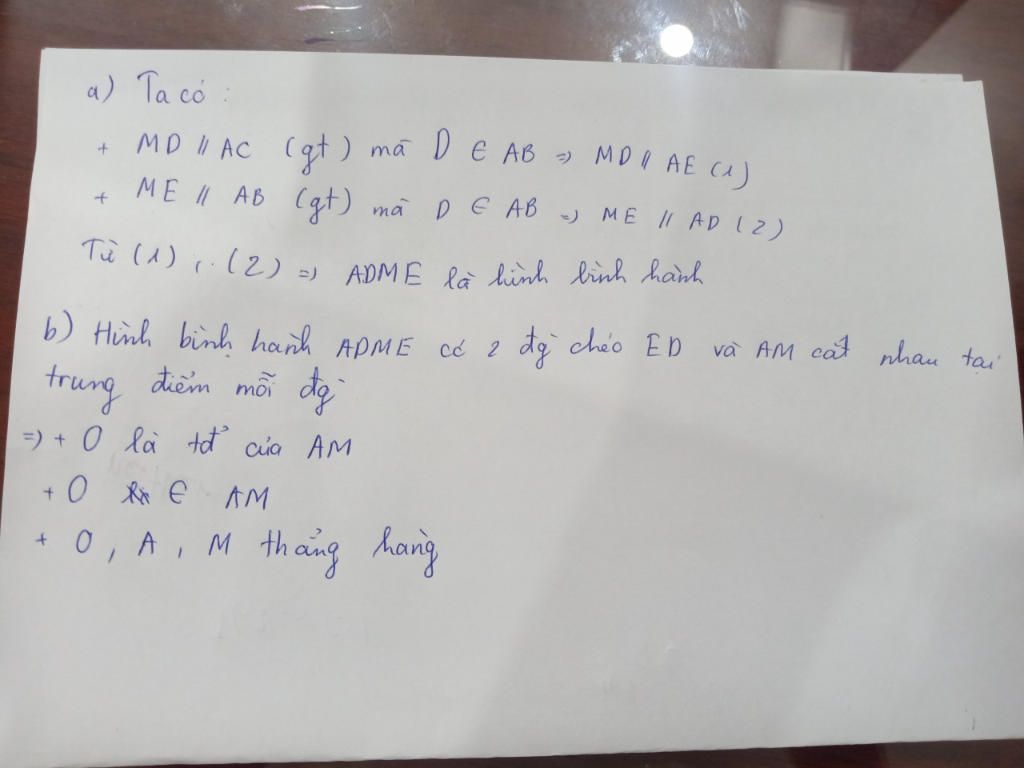 a) Ta có :
+ MD // AC (gt) mà D ∈ AB => MD // AE (1)
+ ME // AB (gt) mà D ∈ AB => ME // AD (2)
Từ (1), (2) => ADME là hình bình hành
b) Hình bình hành ADME có 2 đg` chéo ED và AM cắt nhau tại
trung điểm mỗi đg`
=> + O là tđ' của AM
+ O ∈ AM
+ O, A, M thẳng hàng